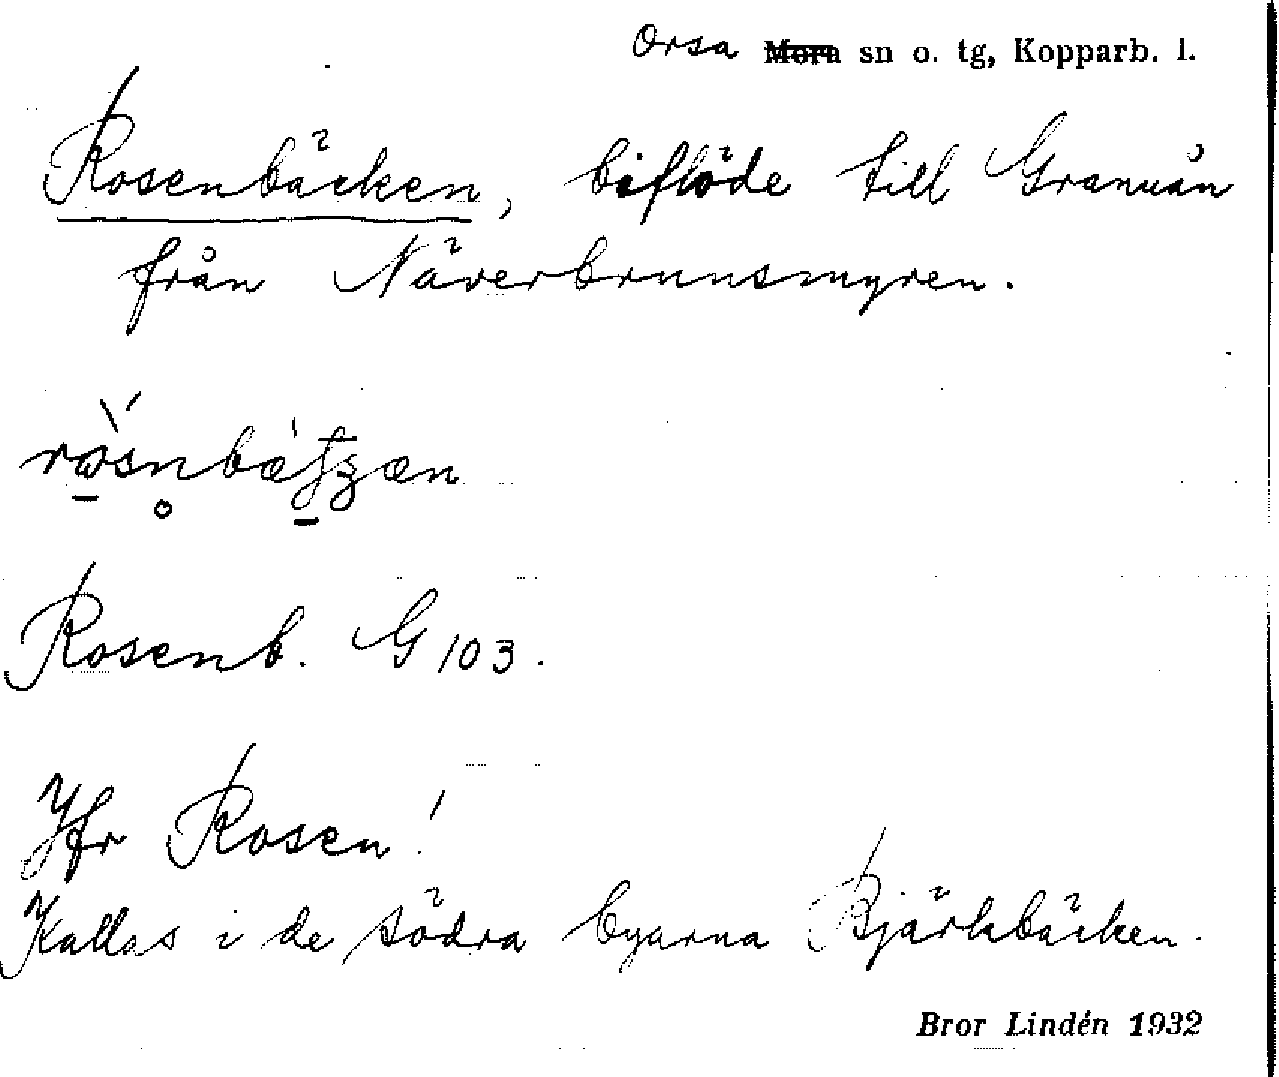 Orsa ~~Mora~~ sn o. tg, Kopparb. l.
Rosenbäcken, biflöde till Granuån
från Näverbrunsmyren.
Rosenb. G 103.
Jfr Rosen!
Kallas i de södra byarna Bjärkbäcken.
Bror Lindén 1932